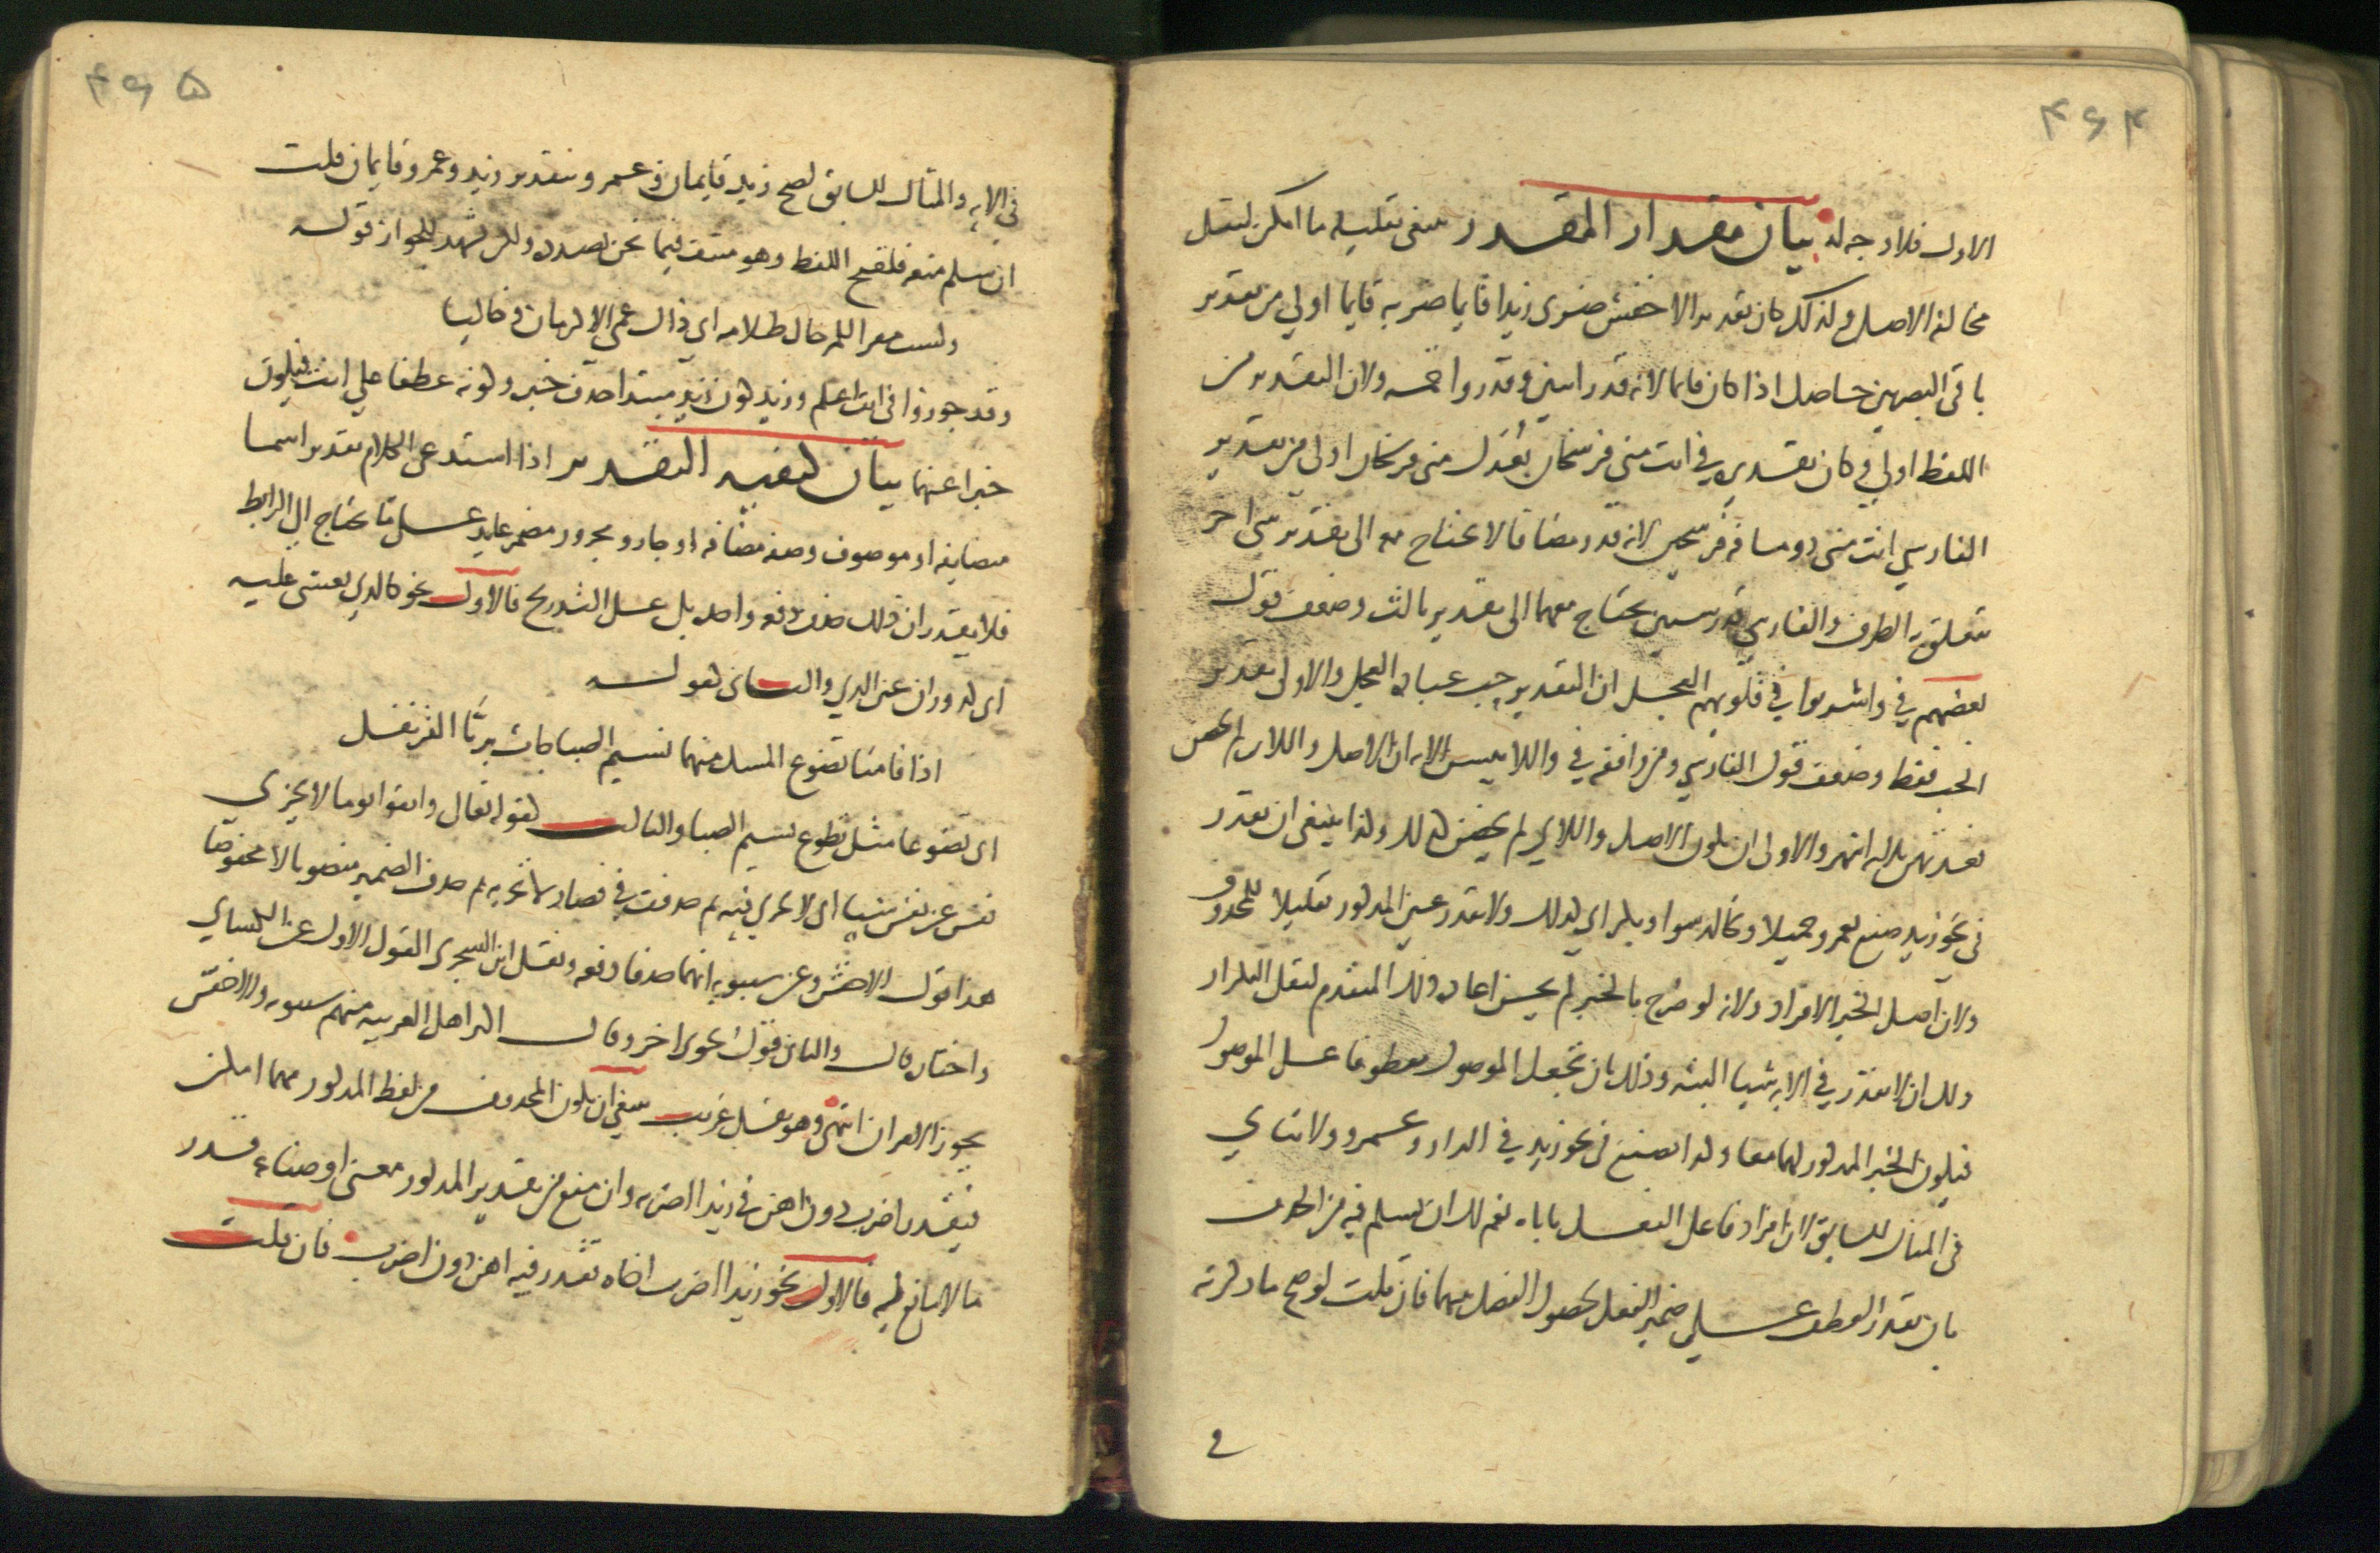 ۴۶۴
الاول فلا وجه له بيان مقدار المقدر ينبغي تقليله ما امكن لتقل
مخالفة الاصل ولذلك كان تقدير الاخفش ضربي زيدا قايما ضربه قايما اولي من تقدير
باقي البصريين حاصل اذا كان قايما لانه قدر اثنين وقدروا خمسة ولان التقدير من
اللفظ اولي وكان تقديره في انت مني فرسخان بعدك مني فرسخان اولي من تقدير
الفارسي انت مني ذو مسافة فرسخين لانه قدر مضافا لا يحتاج معه الى تقدير شي اخر
يتعلق به الظرف والفارسي قدر شيين يحتاج معهما الى تقدير ثالث وضعف قول
بعضهم في واشربوا في قلوبهم العجل ان التقدير حب عبادة العجل والاولى تقدير
الحب فقط وضعف قول الفارسي ومن وافقه في واللايي يسن الاية ان الاصل واللاي لم يحضن
فعدتهن ثلاثة اشهر والاولى ان يكون الاصل واللاي لم يحضن كذلك ولذا ينبغي ان يقدر
في نحو زيد صنع بعمرو جميلا وبخالد سوا وبكر اي كذلك ولا يقدر عين المذكور تقليلا للمحذوف
ولان اصل الخبر الافراد ولانه لو صرح بالخبر لم يحسن اعادة ذلك المتقدم لثقل التكرار
ولك ان لا تقدر في الاية شيا البتة وذلك بان تجعل الموصول معطوفا على الموصول
فيكون الخبر المذكور لهما معا ولذا تصنع في نحو زيد في الدار وعمرو ولا يتاتي
في المثال السابق لان افراد فاعل الفعل ياباه نعم لك ان تسلم فيه من الحذف
بان تقدر العطف على ضمير الفعل لحصول الفصل بينهما فان قلت لو صح ما ذكرته
في
۴۶۵
في الاية والمثال السابق لصح زيد قايمان وعمرو بتقدير زيد وعمرو قايمان قلت
ان سلم منعه فلقبح اللفظ وهو منتف فيما نحن بصدده ولكن يشهد للجواز قوله
ولست مقرا للرجال ظلامة ابي ذاك عمي الاكرمان وخاليا
وقد جوزوا في انت اعلم وزيد كون زيد مبتدا حذف خبره وكونه عطفا علي انت فيكون
خبرا عنهما بيان كيفية التقدير اذا استدعى الكلام تقدير اسما
متضايفة او موصوف وصفة مضافة او جار ومجرور مضمر عايد على ما يحتاج الى الرابط
فلا يقدر ان ذلك حذف دفعة واحدة بل على التدريج فالاول نحو كالذي يغشى عليه
اي كدوران عين الذي والثاني كقوله
اذا قامتا تضوع المسك منهما نسيم الصبا جاءت بريا القرنفل
اي تضوعا مثل تضوع نسيم الصبا والثالث كقوله تعالى واتقوا يوما لا تجزي
نفس عن نفس شيا اي لا تجزي فيه ثم حذفت في فصار لا تجزيه ثم حذف الضمير منصوبا لا مخفوضا
هذا قول الاخفش وعن سيبويه انهما حذفا دفعة ونقل ابن الشجري القول الاول عن الكسايي
واختاره قال والثاني قول نحوي اخر وقال اكثر اهل العربية منهم سيبويه والاخفش
يجوز الامران انتهى وهو نقل غريب ينبغي ان يكون المحذوف من لفظ المذكور مهما امكن
فيقدر اضرب دون اهن في زيدا اضربه وان منع من تقدير المذكور معنى او صناعة قدر
ما لا مانع له فالاول نحو زيدا اضرب اخاه يقدر فيه اهن دون اضرب فان قلت